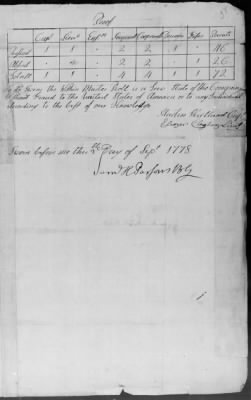 Proof
Capt Lieut Ensn Sergeants Corporals Drummr Fifer Privates
Present 1 1 2 2 1 46
Absent 2 2 1 26
Total 1 1 4 4 1 1 72
We do Swear the within Muster Roll is a True State of the Company
without Fraud to the United States of America or to any Individual
According to the best of our Knowledge
Capt
Sworn before me this Day of Sept 1778
Saml H Parsons B G